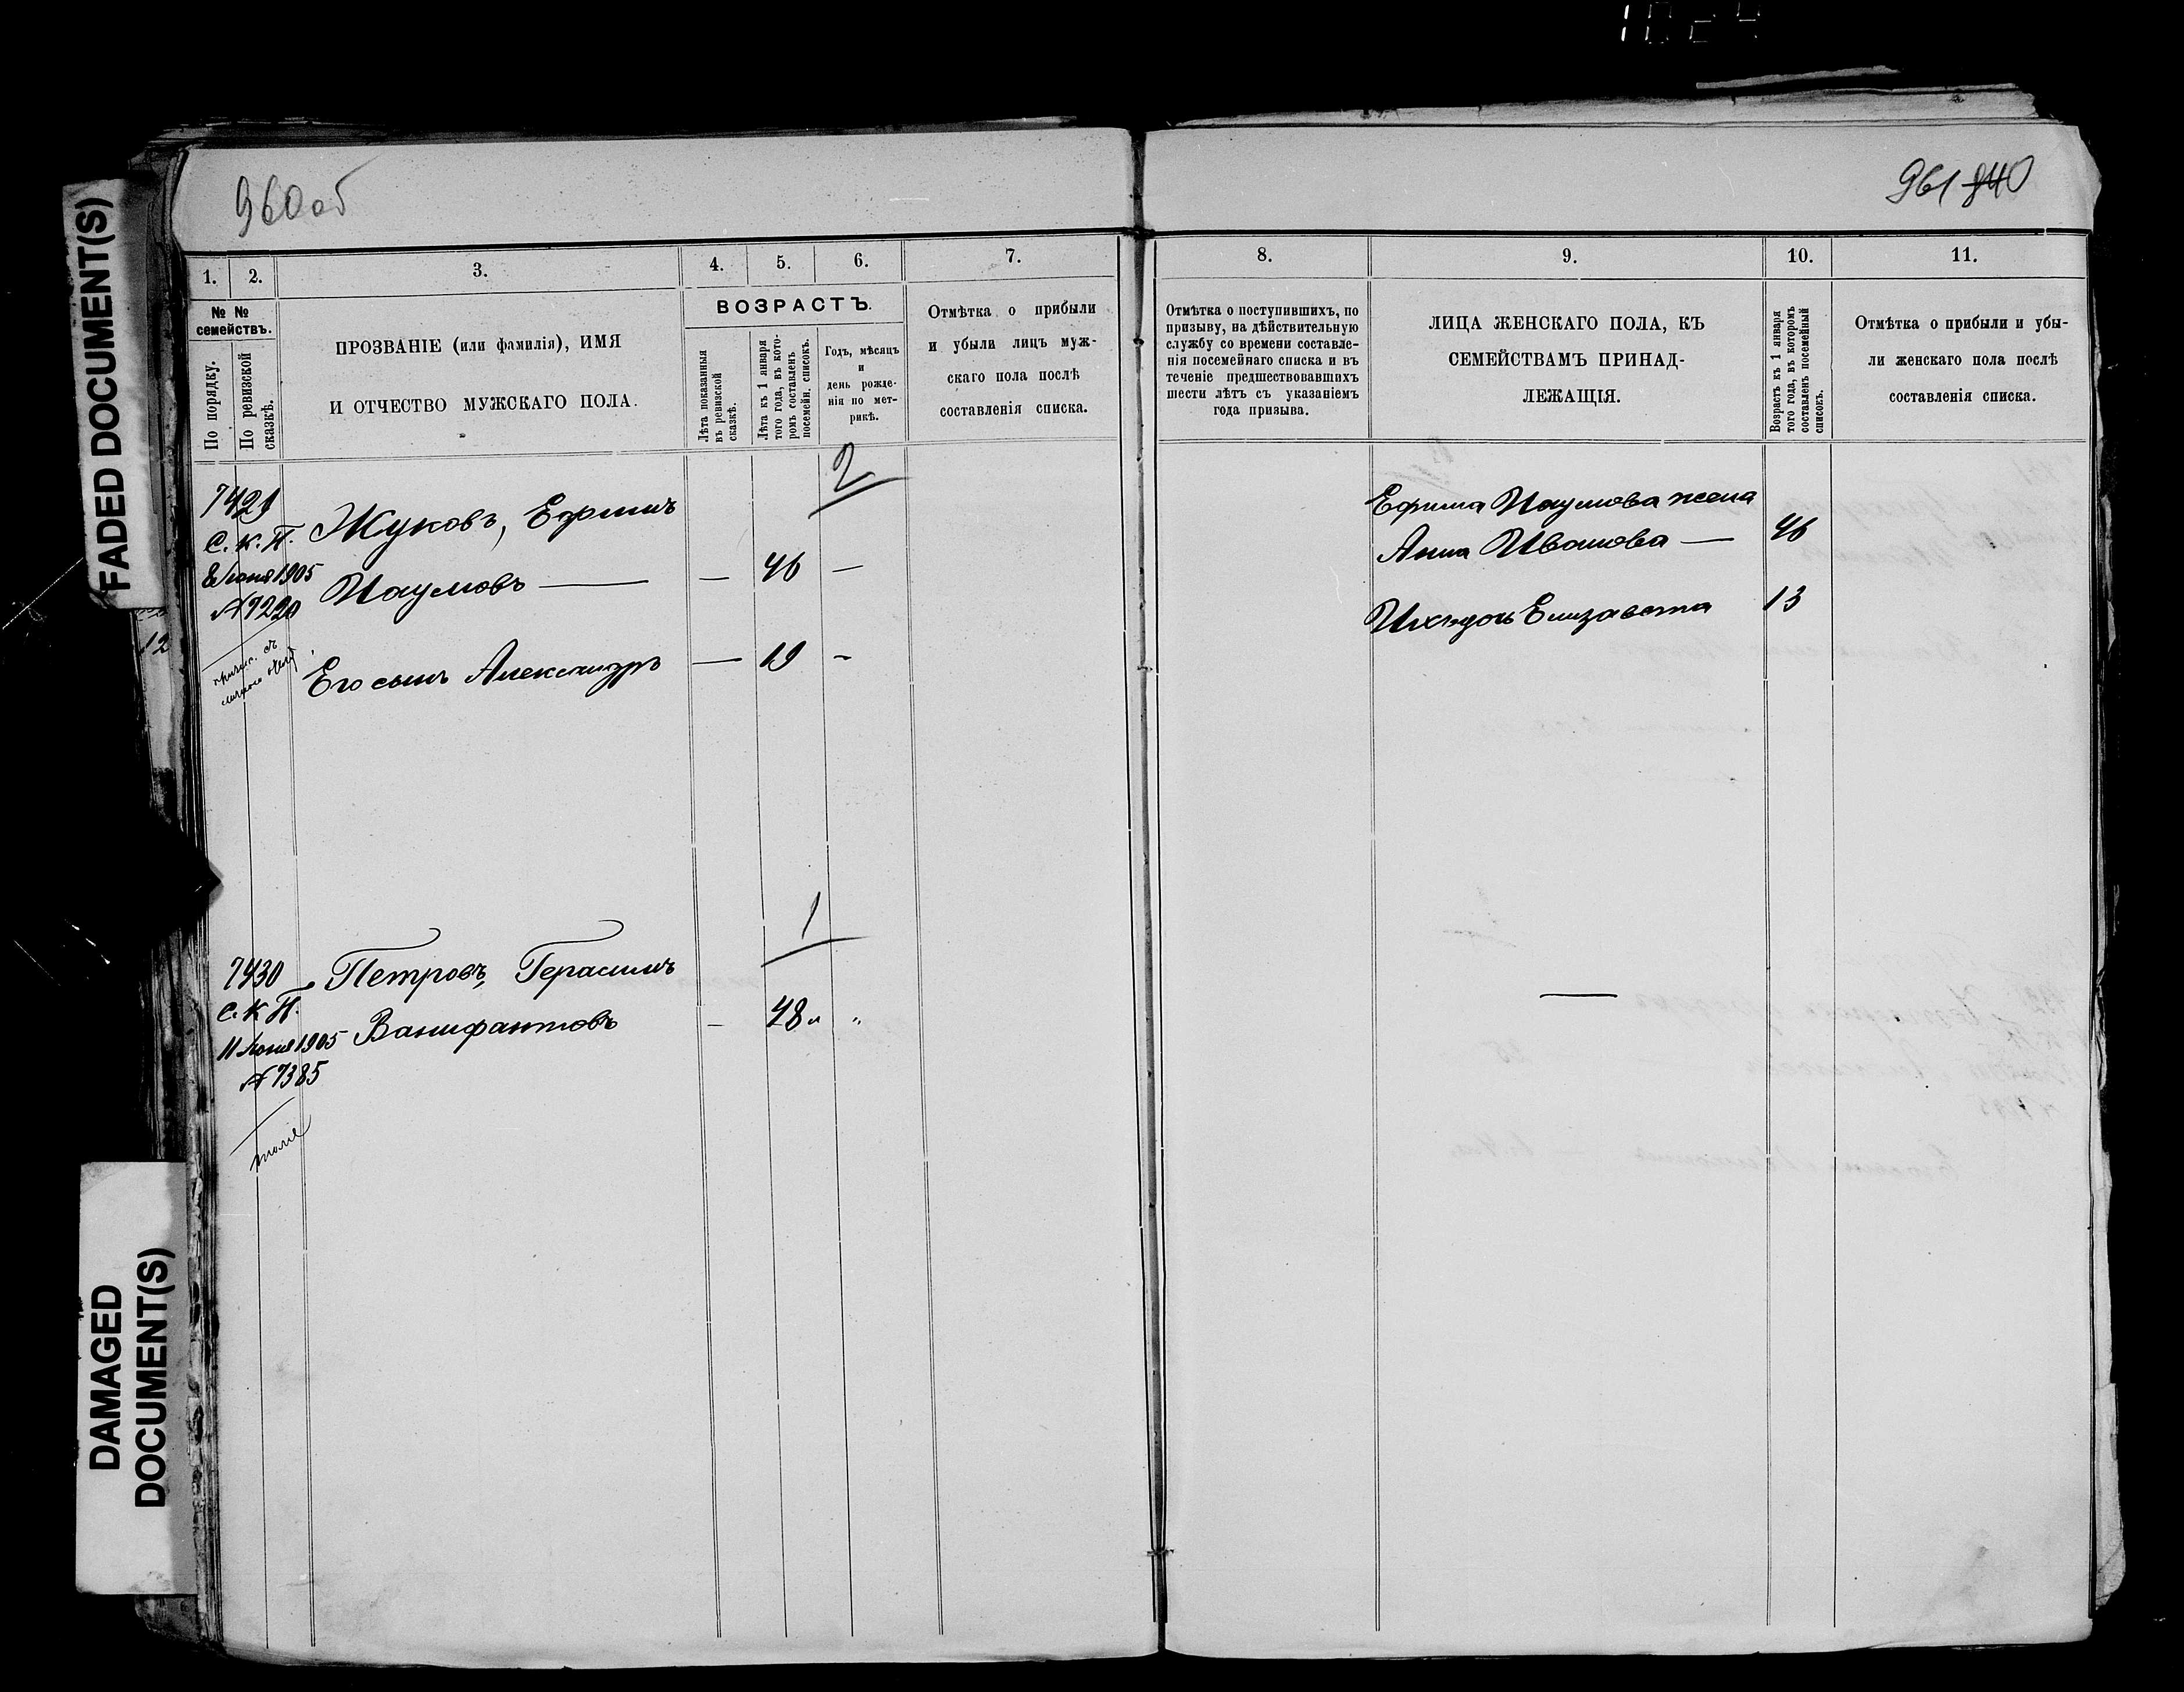 1024
FADED DOCUMENT(S)
DAMAGED
DOCUMENT(S)
12
960об
1. 2. 3. 4. 5. 6. 7.
№ №
семействъ.
По порядку.
По ревизской
сказкѣ.
ПРОЗВАНІЕ (или фамилія), ИМЯ
И ОТЧЕСТВО МУЖСКАГО ПОЛА.
ВОЗРАСТЪ.
Лѣта показанныя
въ ревизской
сказкѣ.
Лѣта къ 1 января
того года, въ кото-
ромъ составленъ
посемейн. списокъ.
Годъ, мѣсяцъ
и
день рожде-
нія по мет-
рикѣ.
Отмѣтка о прибыли
и убыли лицъ муж-
скаго пола послѣ
составленія списка.
2
7429
С. К. П.
8 Іюня 1905
№ 7220
Жуковъ, Ефимъ
Наумовъ — — 46 —
Его сынъ Александръ — 19 -
1
7430
С. К. П.
11 Іюня 1905
№ 7385
тоже
Петровъ, Герасимъ
Ванифантовъ — 48 л „
961 840
8. 9. 10. 11.
Отмѣтка о поступившихъ, по
призыву, на дѣйствительную
службу со времени составле-
нія посемейнаго списка и въ
теченіе предшествовавшихъ
шести лѣтъ съ указаніемъ
года призыва.
ЛИЦА ЖЕНСКАГО ПОЛА, КЪ
СЕМЕЙСТВАМЪ ПРИНАД-
ЛЕЖАЩІЯ.
Возрастъ къ 1 января
того года, въ которомъ
составленъ посемейный
списокъ.
Отмѣтка о прибыли и убы-
ли женскаго пола послѣ
составленія списка.
Ефима Наумова жена
Анна Иванова — 46
Ихъ дочь Елизавета 13
—